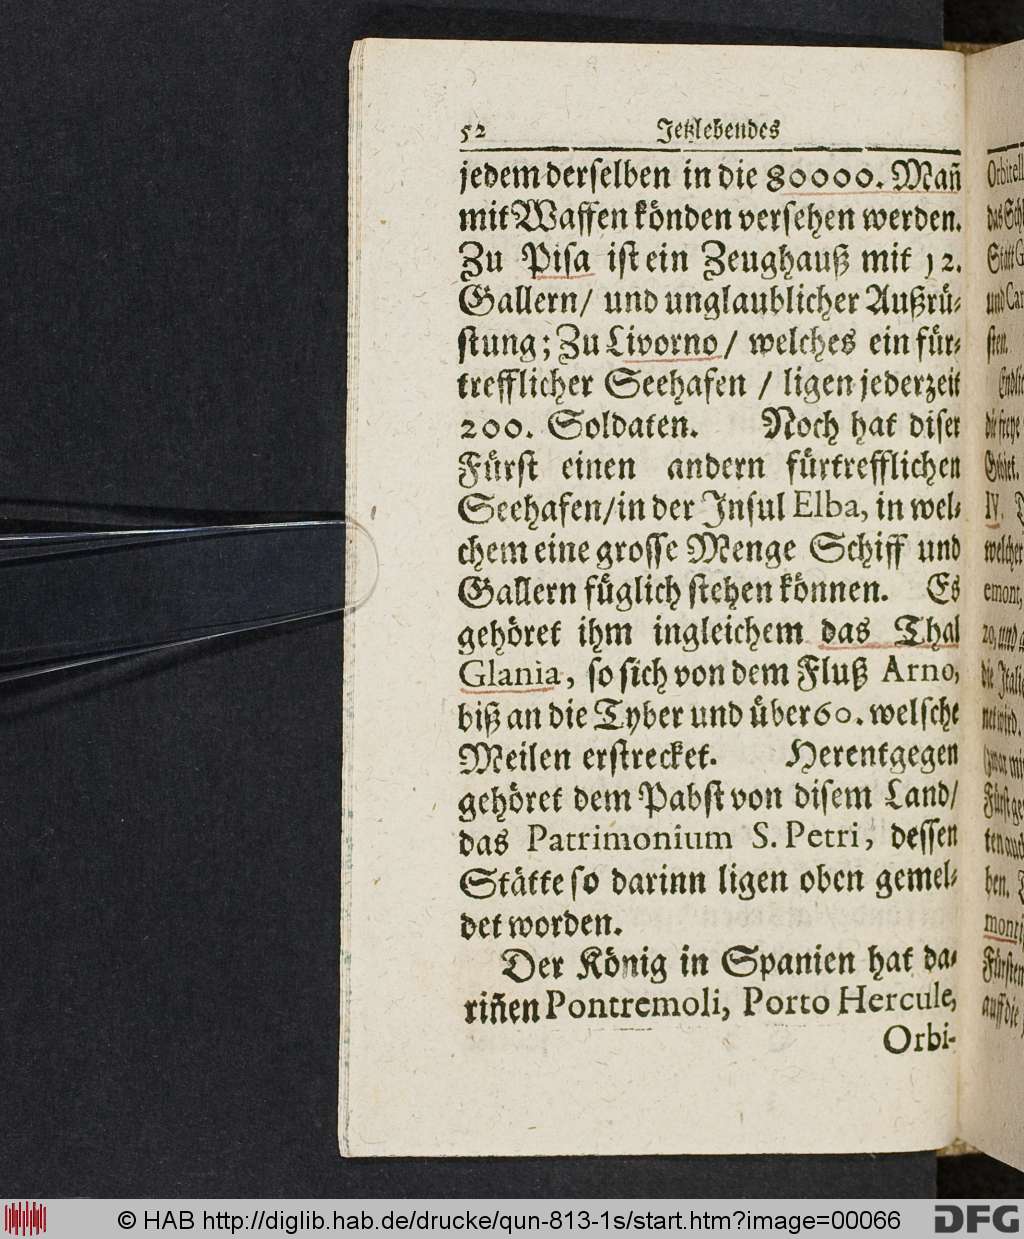 52 Jetzlebendes
jedem derselben in die 80000. Mañ
mit Waffen könden versehen werden.
Zu Pisa ist ein Zeughauß mit 12.
Gallern/ und unglaublicher Außrü-
stung; Zu Livorno/ welches ein für-
trefflicher Seehafen / ligen jederzeit
200. Soldaten. Noch hat diser
Fürst einen andern fürtrefflichen
Seehafen/in der Insul Elba, in wel-
chem eine grosse Menge Schiff und
Gallern füglich stehen können. Es
gehöret ihm ingleichem das Thal
Glania, so sich von dem Fluß Arno,
biß an die Tyber und über 60. welsche
Meilen erstrecket. Herentgegen
gehöret dem Pabst von disem Land/
das Patrimonium S. Petri, dessen
Stätte so darinn ligen oben gemel-
det worden.
Der König in Spanien hat da-
riñen Pontremoli, Porto Hercule,
Orbi-
Orbitell
das Sch
Statt G
und Car
sten.
Endlic
die freye
Gebiet.
IV.
welcher
emont,
20, und
die Itali
net wird.
Fürst ge
ten auch
ben.
mont
Fürsten
auff die
© HAB http://diglib.hab.de/drucke/qun-813-1s/start.htm?image=00066
DFG